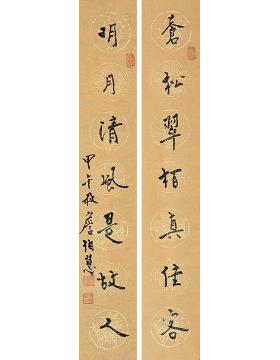 蒼松翠柏真佳客
明月清風是故人
甲午秋詹伯慧